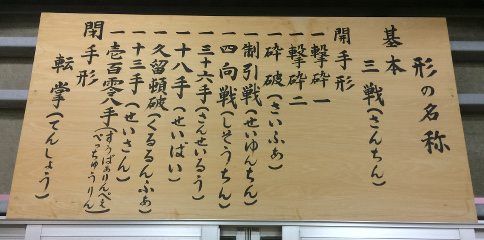 形の名称
基本
三戦(さんちん)
開手形
一撃砕一
一撃砕二
一砕破(さいふぁ)
一制引戦(せいゆんちん)
一四向戦(しそうちん)
一三十六手(さんせいるう)
一十八手(せいぱい)
一久留頓破(くるるんふぁ)
一十三手(せいさん)
一壱百零八手(すうぱありんぺえ)(ぺっちゅうりん)
閉手形
転掌(てんしょう)